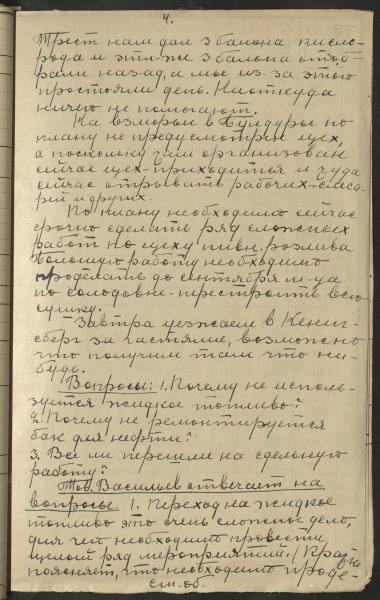 4.
Трест нам дал 3 балона кисло-
рода и эти-же 3 балона отоб-
рали назад, и мы из-за этого
простояли день. Ниоткуда
ничего не помогают.
На взморьи в Булдурье по
плану не предусмотрен цех,
а поскольку там организован
сейчас цех-приходится и туда
сейчас отрывать рабочих-слеса-
рей и других.
По плану необходимо сейчас
срочно сделать ряд сложных
работ по цеху пивн. розлива
большую работу необходимо
проделать до сентября м-ца
по солодовне-перестроить всю
сушку.
Завтра уезжаем в Кениг-
сберг за частями, возможно
что получим там что ни-
будь.
Вопросы: 1. Почему не исполь-
зуется жидкое топливо?
2. Почему не ремонтируется
бак для нефти?
3. Все ли перешли на сдельную
работу?
Тов. Васильев отвечает на
вопросы. 1. Переход на жидкое
топливо это очень сложное дело,
для чего необходимо провести
целый ряд мероприятий.
поясняет, что необходимо проде-
см. об.